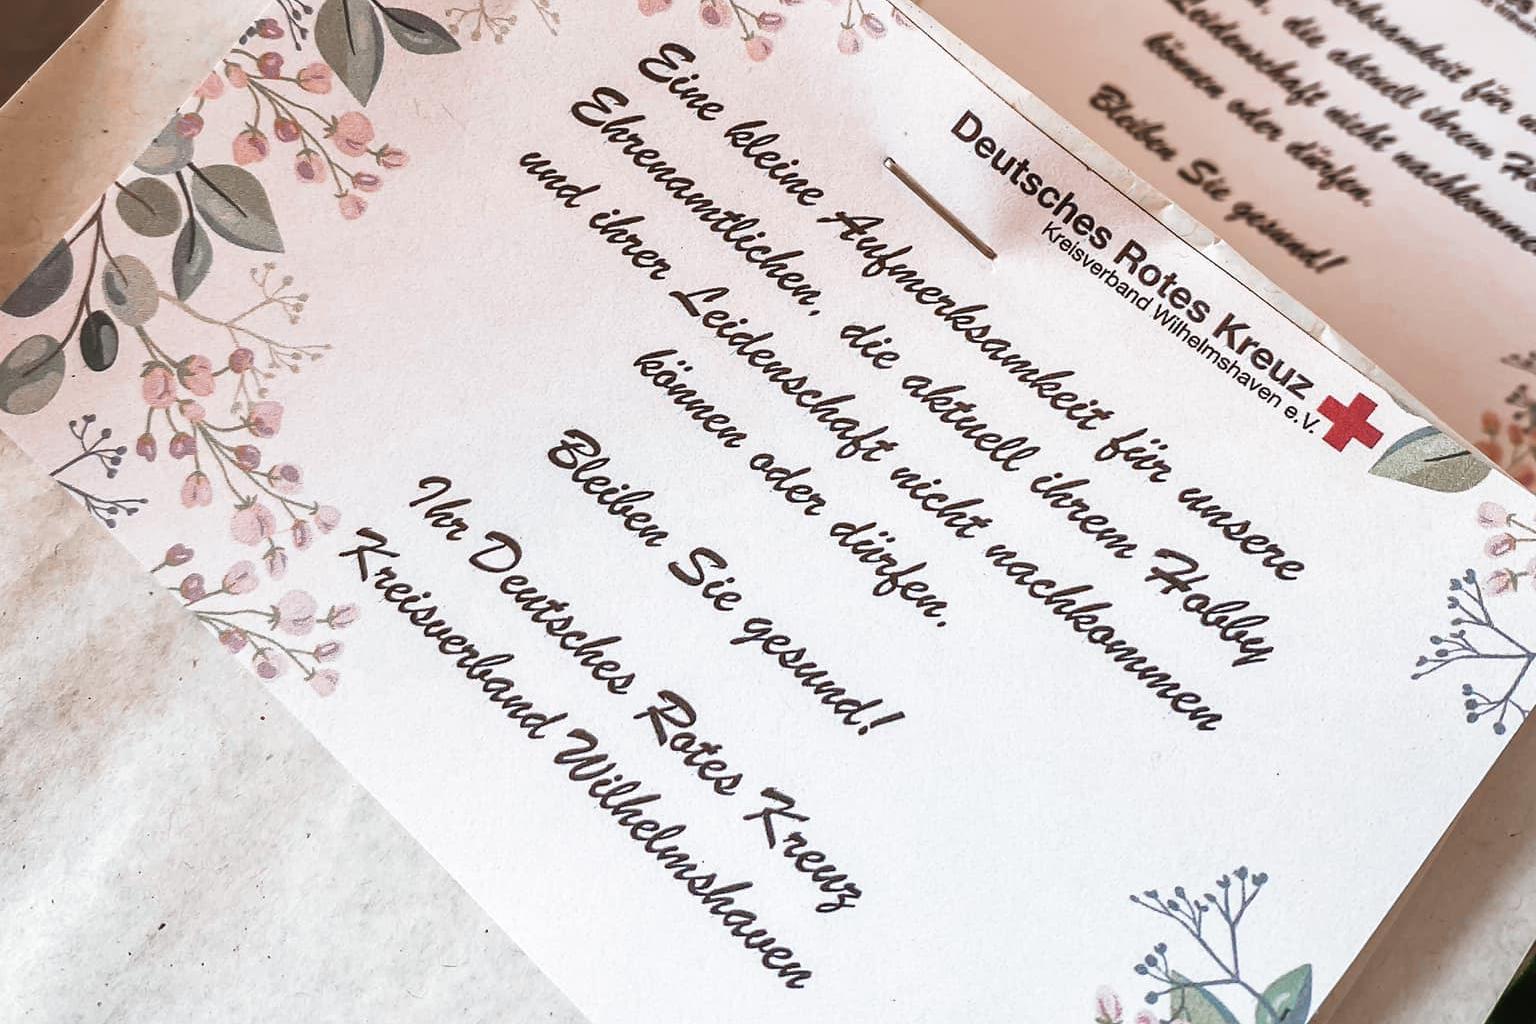 Deutsches Rotes Kreuz
Kreisverband Wilhelmshaven e.V.
Eine kleine Aufmerksamkeit für unsere
Ehrenamtlichen, die aktuell ihrem Hobby
und ihrer Leidenschaft nicht nachkommen
können oder dürfen.
Bleiben Sie gesund!
Ihr Deutsches Rotes Kreuz
Kreisverband Wilhelmshaven
die aktuell ihrem
Leidenschaft nicht nachkommen
können oder dürfen.
Bleiben Sie gesund!